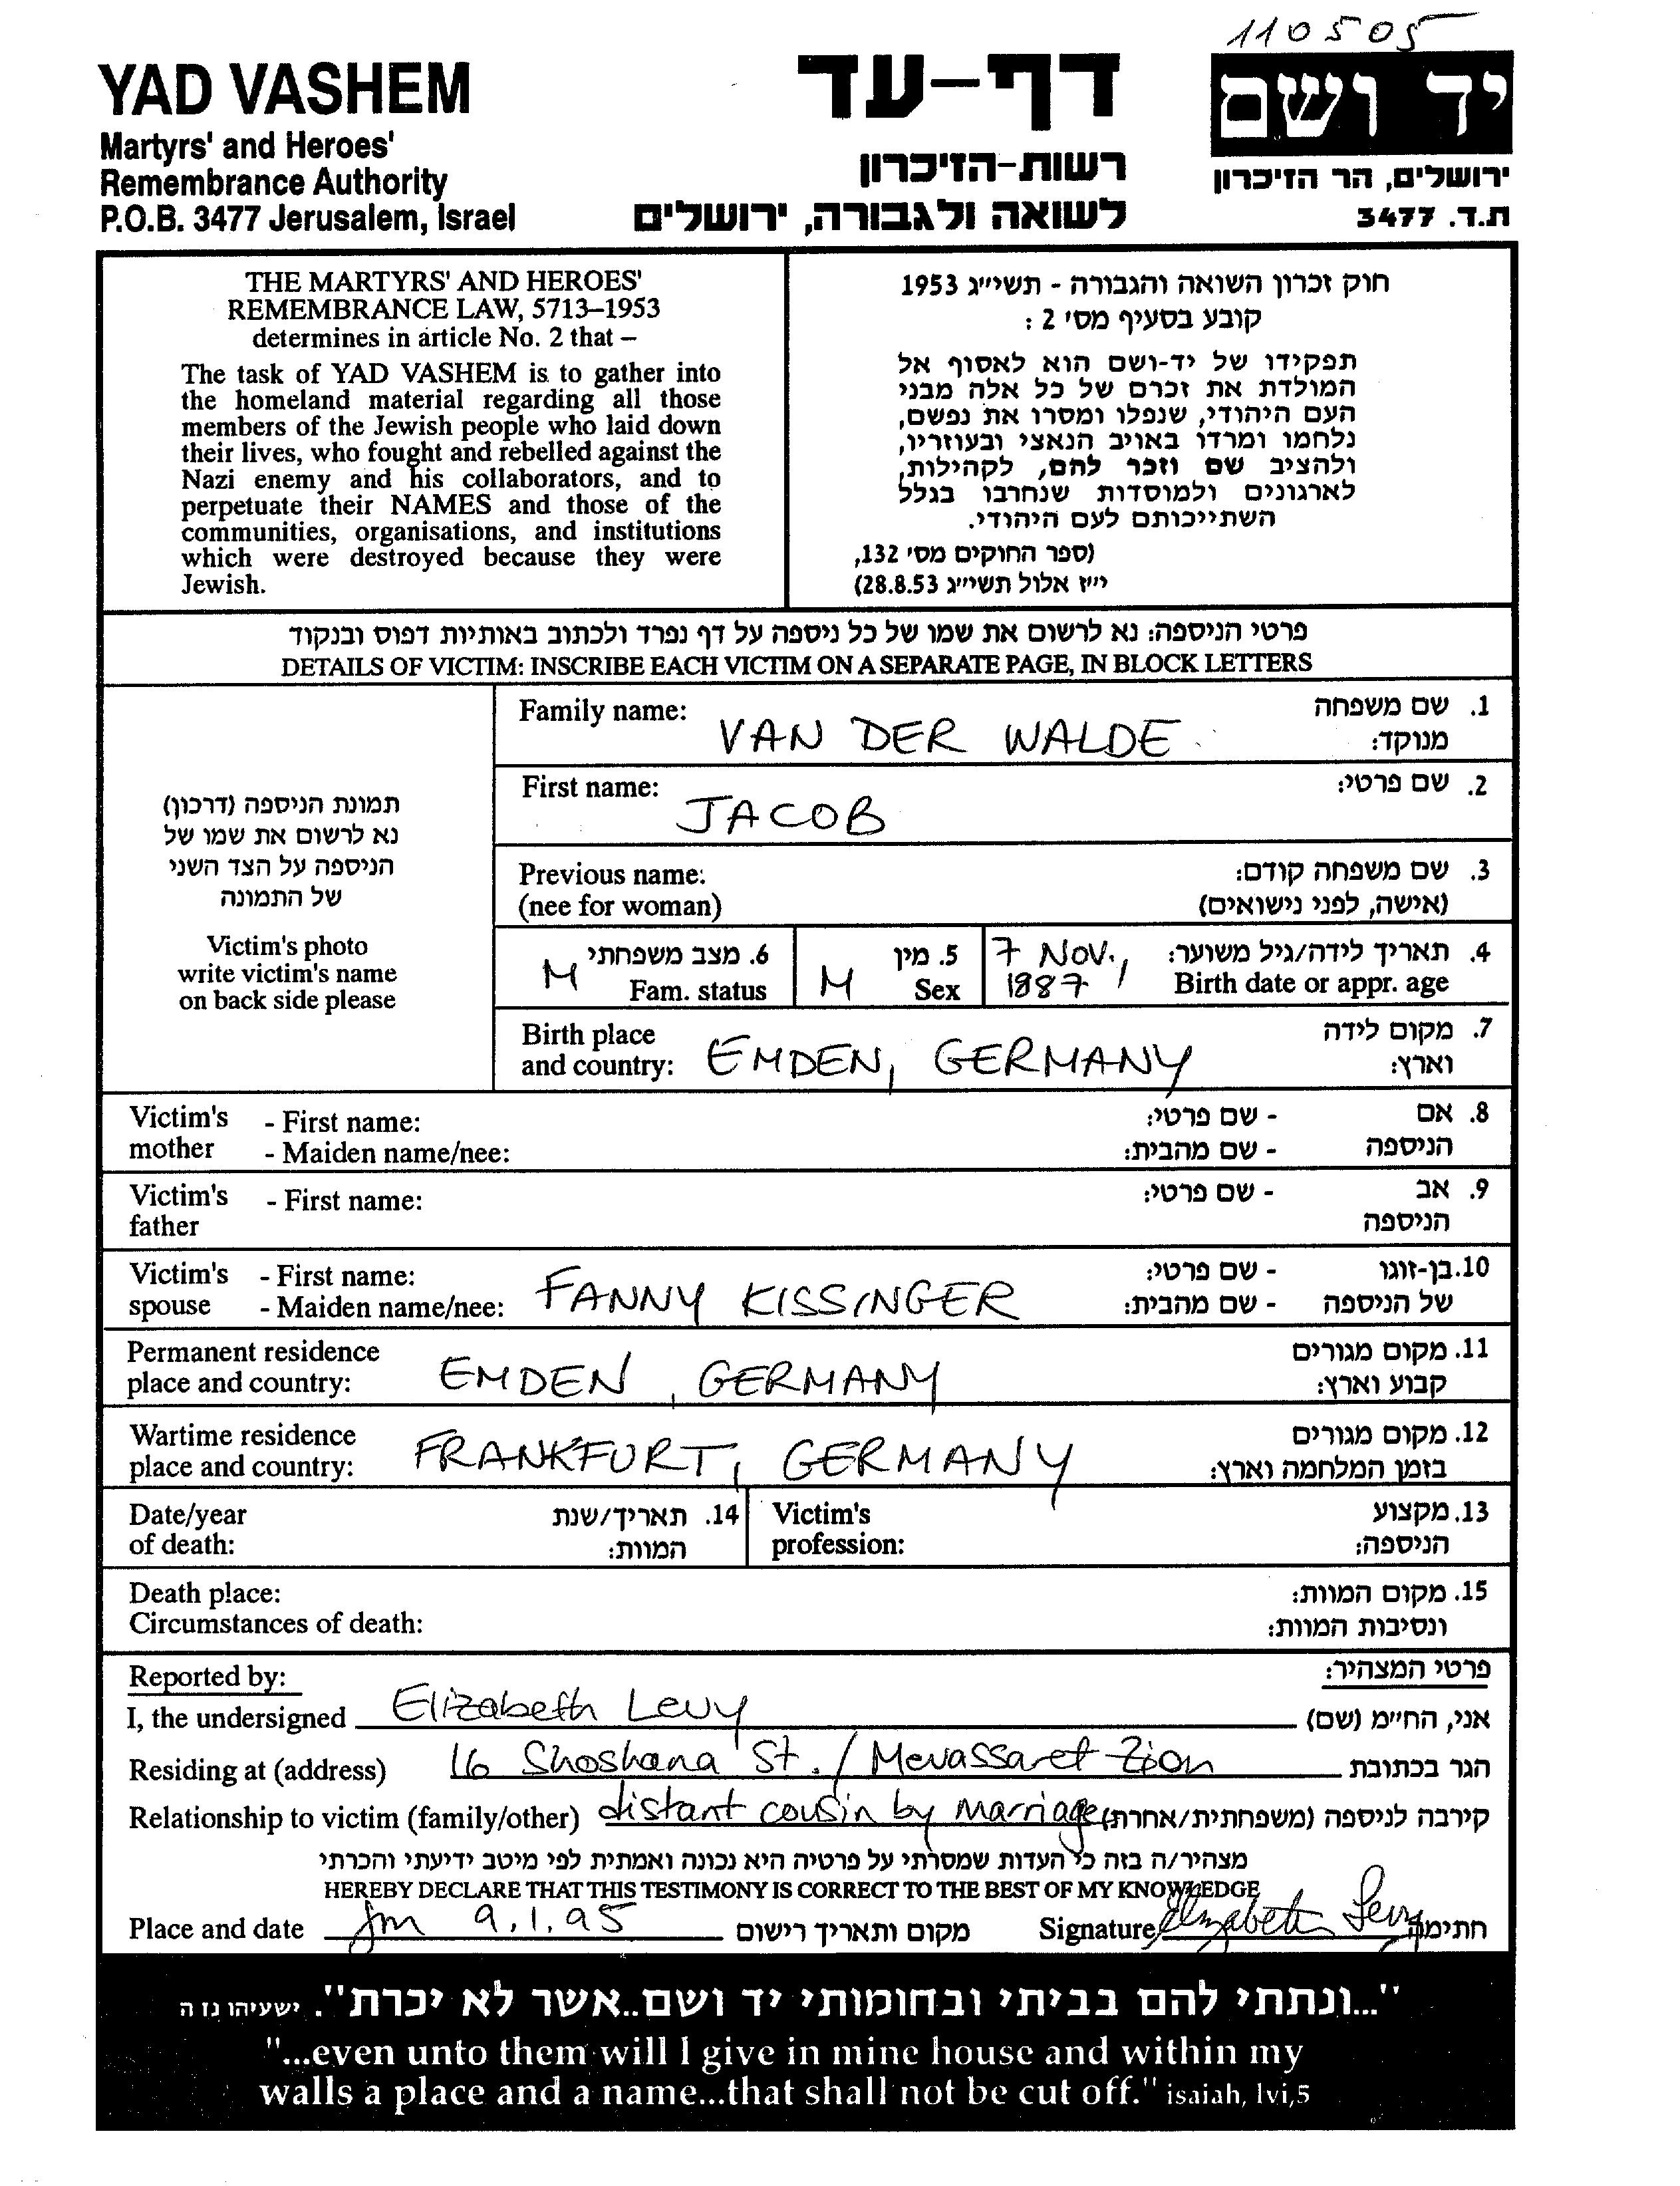 110505
YAD VASHEM
Martyrs' and Heroes'
Remembrance Authority
P.O.B. 3477 Jerusalem, Israel
דף-עד
רשות-הזיכרון
לשואה ולגבורה, ירושלים
יד ושם
ירושלים, הר הזיכרון
ת.ד. 3477
THE MARTYRS' AND HEROES'
REMEMBRANCE LAW, 5713–1953
determines in article No. 2 that –
The task of YAD VASHEM is to gather into
the homeland material regarding all those
members of the Jewish people who laid down
their lives, who fought and rebelled against the
Nazi enemy and his collaborators, and to
perpetuate their NAMES and those of the
communities, organisations, and institutions
which were destroyed because they were
Jewish.
חוק זכרון השואה והגבורה - תשי״ג 1953
קובע בסעיף מס׳ 2 :
תפקידו של יד-ושם הוא לאסוף אל
המולדת את זכרם של כל אלה מבני
העם היהודי, שנפלו ומסרו את נפשם,
נלחמו ומרדו באויב הנאצי ובעוזריו,
ולהציב שם וזכר להם, לקהילות,
לארגונים ולמוסדות שנחרבו בגלל
השתייכותם לעם היהודי.
(ספר החוקים מס׳ 132,
י״ז אלול תשי״ג 28.8.53)
פרטי הניספה: נא לרשום את שמו של כל ניספה על דף נפרד ולכתוב באותיות דפוס ובנקוד
DETAILS OF VICTIM: INSCRIBE EACH VICTIM ON A SEPARATE PAGE, IN BLOCK LETTERS
תמונת הניספה (דרכון)
נא לרשום את שמו של
הניספה על הצד השני
של התמונה
Victim's photo
write victim's name
on back side please
Family name: VAN DER WALDE 1. שם משפחה
מנוקד:
First name: JACOB 2. שם פרטי:
Previous name: 3. שם משפחה קודם:
(nee for woman) (אישה, לפני נישואים)
M 6. מצב משפחתי M 5. מין 7 NOV., 4. תאריך לידה/גיל משוער:
Fam. status Sex 1887 Birth date or appr. age
Birth place 7. מקום לידה
and country: EMDEN, GERMANY וארץ:
Victim's - First name: - שם פרטי: 8. אם
mother - Maiden name/nee: - שם מהבית: הניספה
Victim's - First name: - שם פרטי: 9. אב
father הניספה
Victim's - First name: - שם פרטי: 10. בן-זוגו
spouse - Maiden name/nee: FANNY KISSINGER - שם מהבית: של הניספה
Permanent residence 11. מקום מגורים
place and country: EMDEN, GERMANY קבוע וארץ:
Wartime residence 12. מקום מגורים
place and country: FRANKFURT, GERMANY בזמן המלחמה וארץ:
Date/year 14. תאריך/שנת Victim's 13. מקצוע
of death: המוות: profession: הניספה:
Death place: 15. מקום המוות:
Circumstances of death: ונסיבות המוות:
Reported by: פרטי המצהיר:
I, the undersigned Elizabeth Levy אני, הח״מ (שם)
Residing at (address) 16 Shoshana St. / Mevassaret Zion הגר בכתובת
Relationship to victim (family/other) distant cousin by marriage קירבה לניספה (משפחתית/אחרת)
מצהיר/ה בזה כי העדות שמסרתי על פרטיה היא נכונה ואמתית לפי מיטב ידיעתי והכרתי
HEREBY DECLARE THAT THIS TESTIMONY IS CORRECT TO THE BEST OF MY KNOWLEDGE
Place and date Jm 9.1.95 מקום ותאריך רישום Signature Elizabeth Levy חתימה
"...ונתתי להם בביתי ובחומותי יד ושם..אשר לא יכרת". ישעיהו נז ה
"...even unto them will I give in mine house and within my
walls a place and a name...that shall not be cut off." isaiah, lvi,5